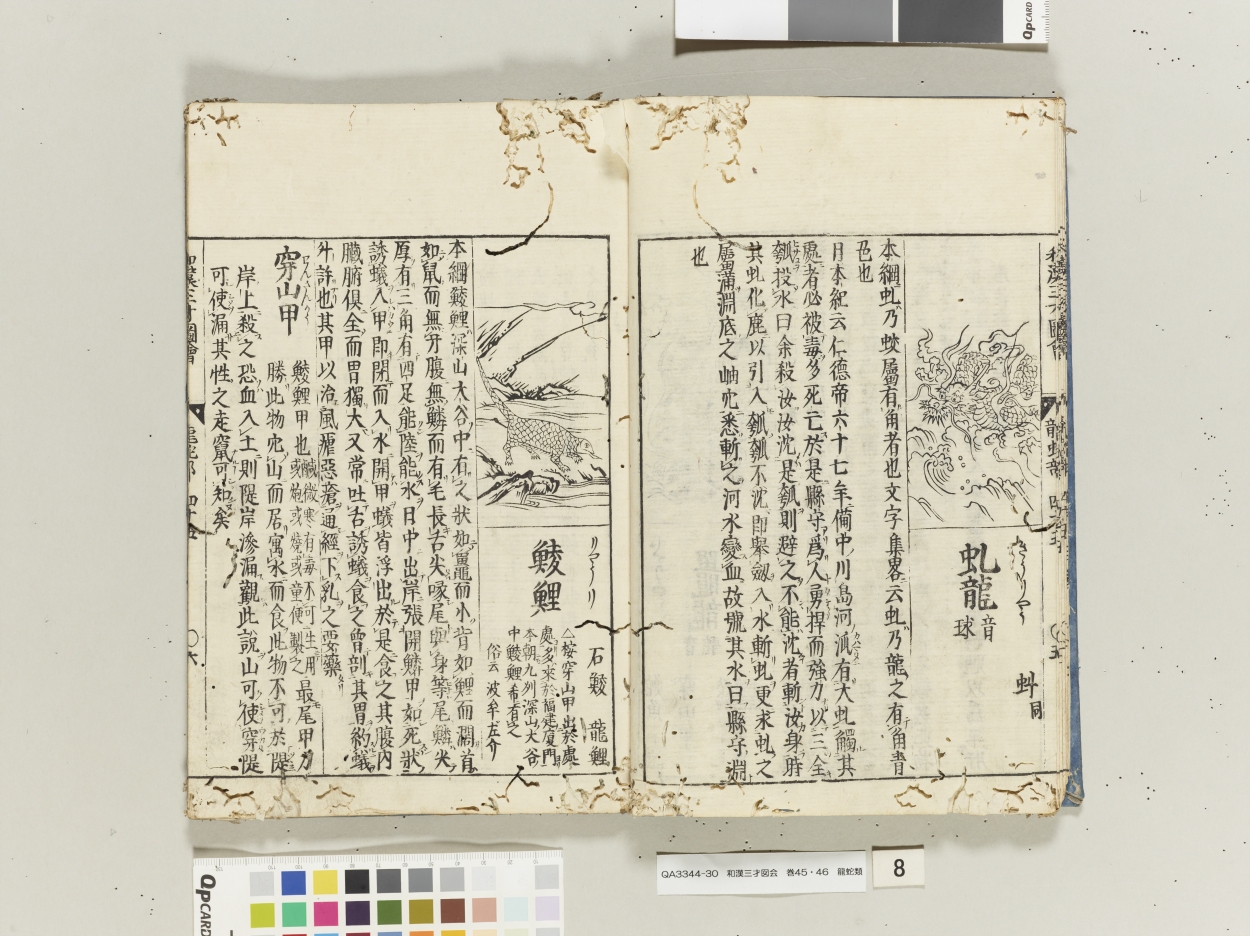 虬龍 音球
虯同
本綱虬乃蛟屬有角者也文字集畧云虬乃龍之有角青
色也
日本紀云仁德帝六十七年備中川島河派有大虬觸其
處者必被毒多死亡於是縣守爲人勇捍而強力以三全
瓠投水曰余殺汝汝沈是瓠則避之不能沈者斬汝身時
其虬化鹿以引入瓠瓠不沈即舉劔入水斬虬更求虬之
屬滿淵底之岫穴悉斬之河水變血故號其水曰縣守淵
也
鯪鯉
石鯪 龍鯉
△按穿山甲出於處
處多來於福建厦門
本朝九州深山大谷
中鯪鯉希有之
俗云 波牟左介
本綱鯪鯉深山大谷中有之狀如鼉而小背如鯉而濶首
如鼠而無牙腹無鱗而有毛長舌尖喙尾與身等尾鱗尖
厚有三角有四足能陸能水日中出岸張開鱗甲如死狀
誘蟻入甲即閉而入水開甲蟻皆浮出於是食之其腹内
臟腑俱全而胃獨大又常吐舌誘蟻食之曾剖其胃約蟻
升許也其甲以治風瘧惡瘡通經下乳之要藥
穿山甲
鯪鯉甲也 鹹微寒有毒不可生用 或炮或燒或童便製之 最尾甲力
勝此物穴山而居寓水而食此物不可於隄
岸上殺之恐血入土則隄岸滲漏觀此說山可使穿隄
可使漏其性之走竄可知矣
QA3344-30 和漢三才図会 巻45・46 龍蛇類
8
QPCARD
QPCARD